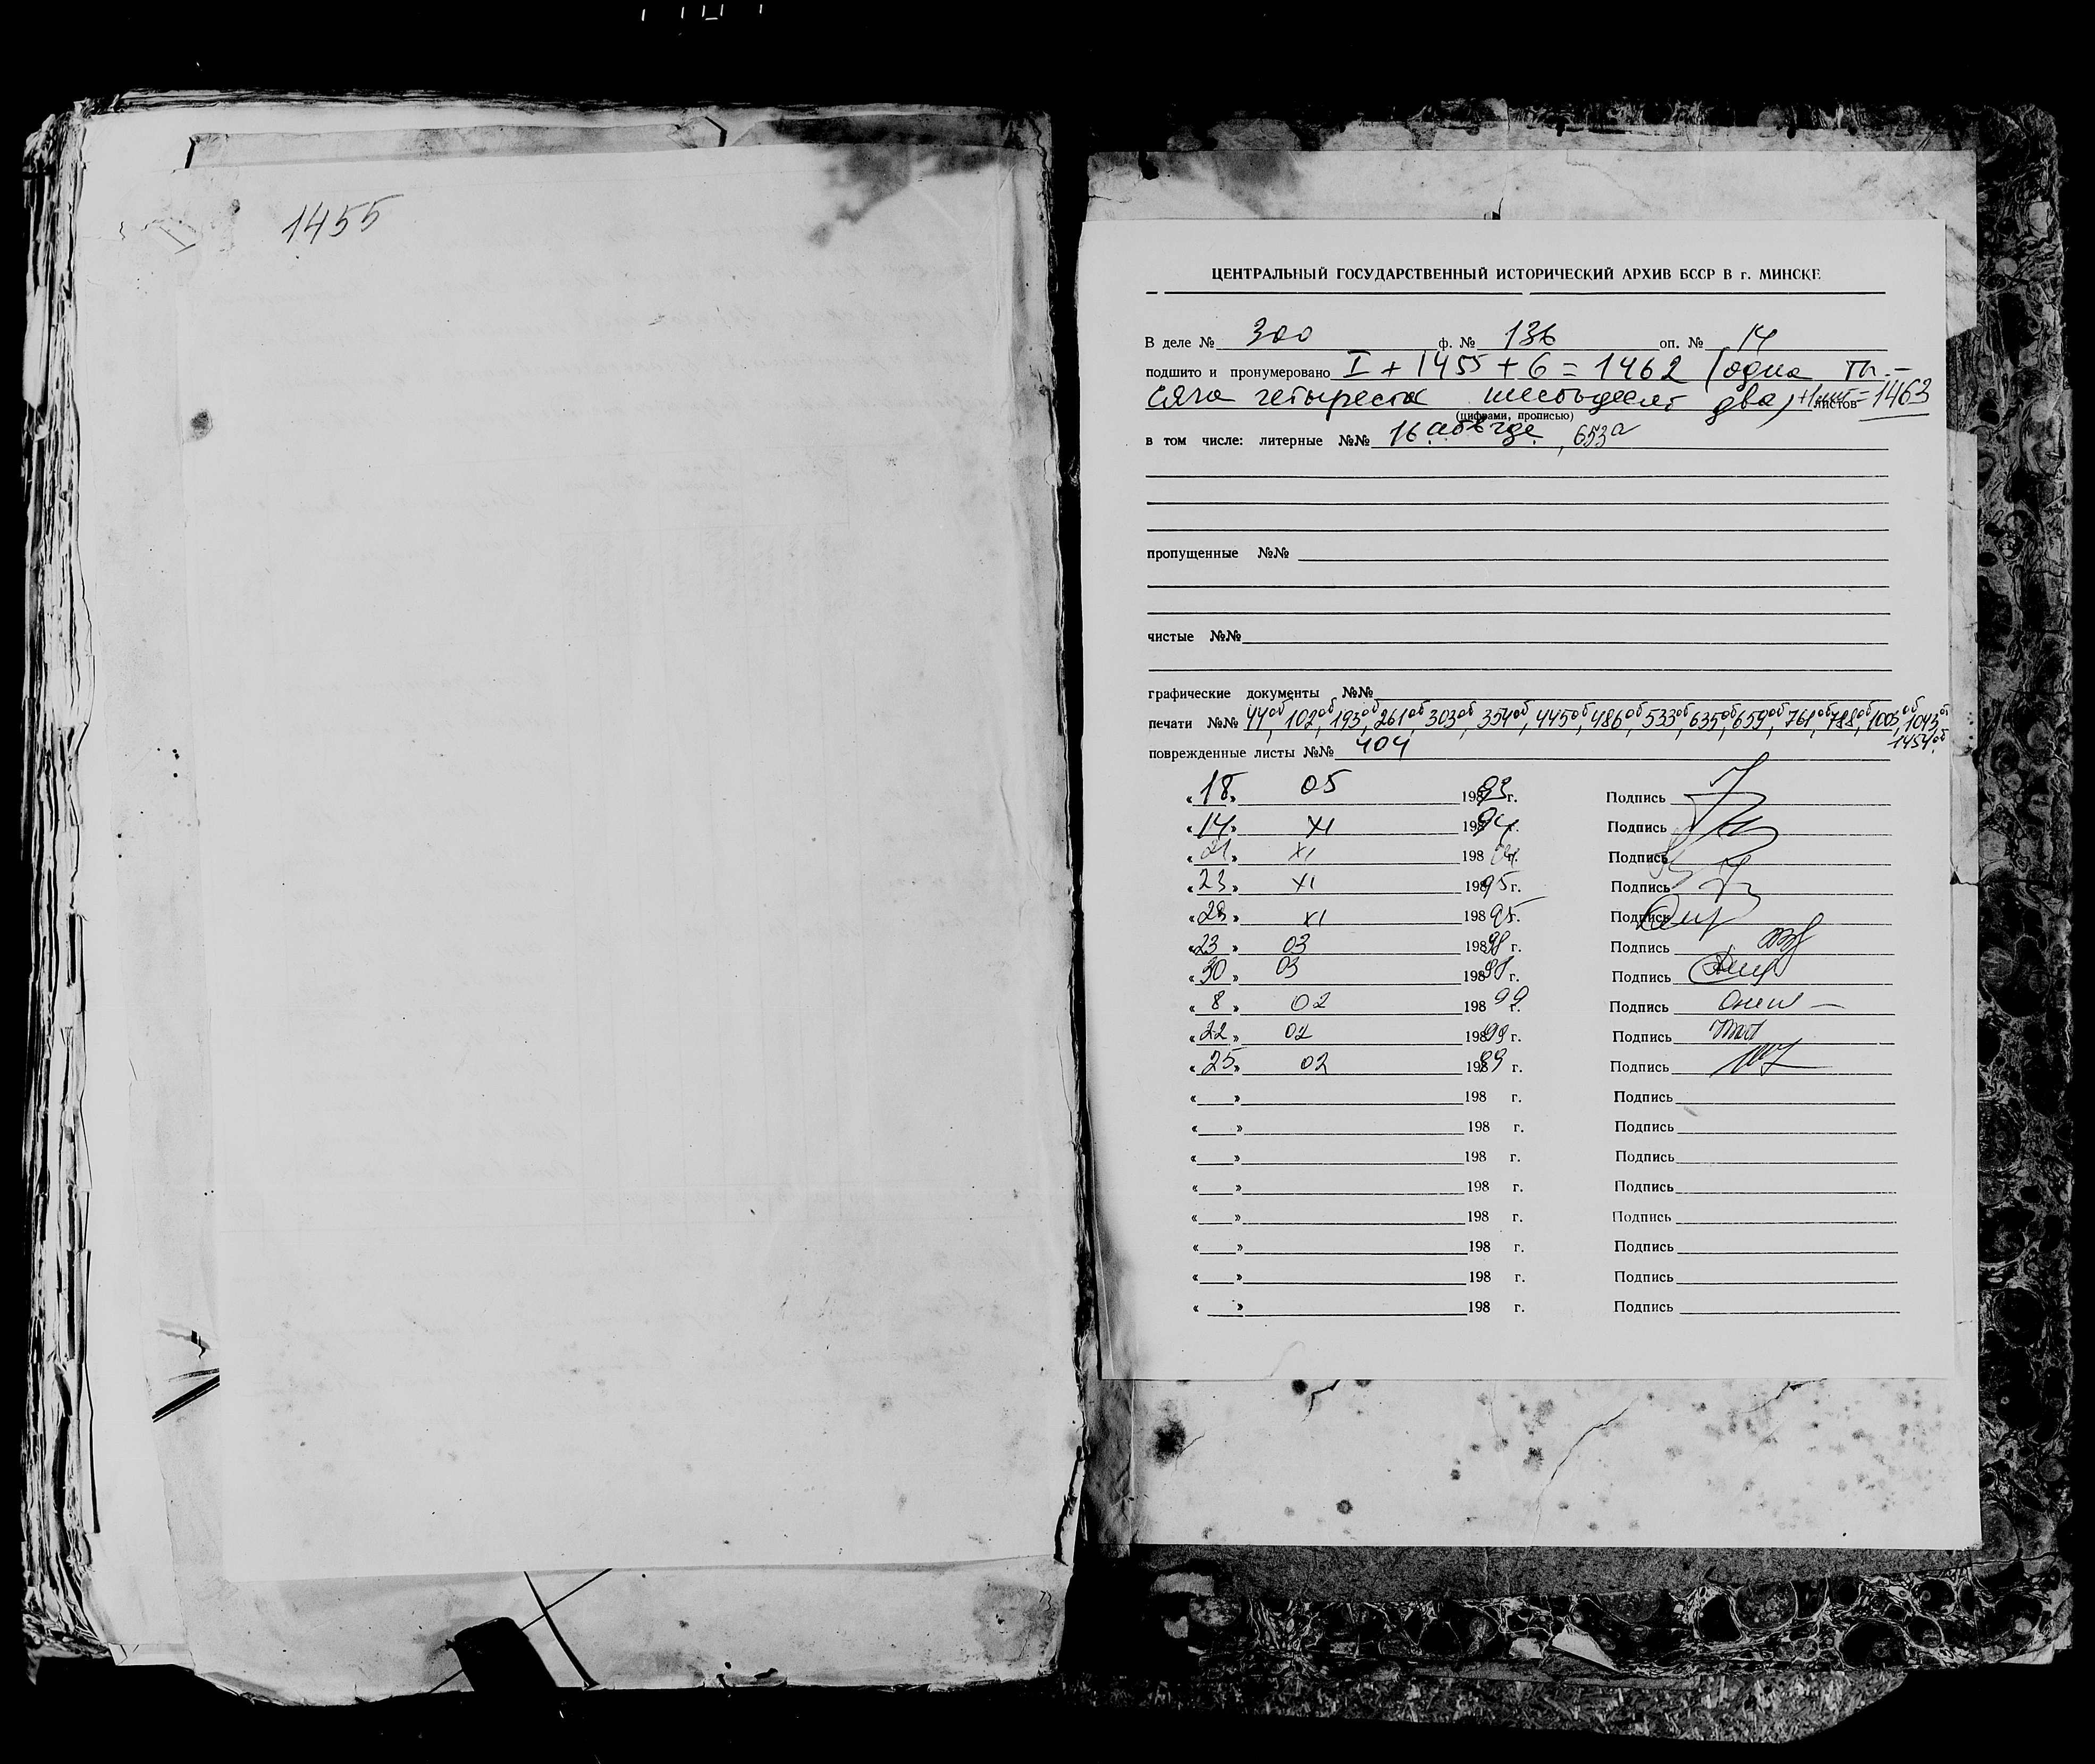 1455
ЦЕНТРАЛЬНЫЙ ГОСУДАРСТВЕННЫЙ ИСТОРИЧЕСКИЙ АРХИВ БССР В г. МИНСКЕ
В деле № 300 ф. № 136 оп. № 14
подшито и пронумеровано I + 1455 + 6 = 1462 (одна ты-
сяча четыреста шестьдесят два) +1лит=1463 листов
(цифрами, прописью)
в том числе: литерные №№ 16абвгде, 653а
пропущенные №№
чистые №№
графические документы №№
печати №№ 44об, 102об, 193об, 261об, 303об, 354об, 445об, 486об, 533об, 635об, 659об, 761об, 788об, 1005об, 1043об
1454об
поврежденные листы №№ 404
« 18 » 05 19893 г. Подпись
« 14 » XI 19894 г. Подпись
« 21 » XI 198 г. Подпись
« 23 » XI 19895 г. Подпись
« 28 » XI 19895 г. Подпись
« 23 » 03 19898 г. Подпись
« 30 » 03 19898 г. Подпись
« 8 » 02 19899 г. Подпись
« 22 » 02 19899 г. Подпись
« 25 » 02 19899 г. Подпись
« » 198 г. Подпись
« » 198 г. Подпись
« » 198 г. Подпись
« » 198 г. Подпись
« » 198 г. Подпись
« » 198 г. Подпись
« » 198 г. Подпись
« » 198 г. Подпись